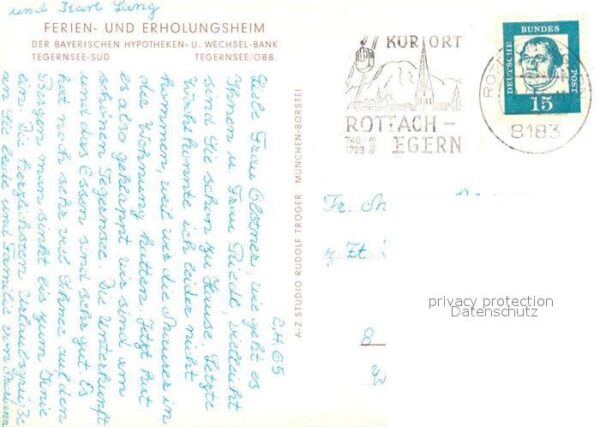 und Karl Lang
FERIEN- UND ERHOLUNGSHEIM
DER BAYERISCHEN HYPOTHEKEN- U. WECHSEL-BANK
TEGERNSEE-SÜD TEGERNSEE/OBB.
8.4.65
Liebe Frau Elstner, wie geht es
Ihnen u. Frau Riedl, vielleicht
sind Sie schon zu Hause. Letzte
Woche konnte ich leider nicht
kommen, weil wir die Maurer in
der Wohnung hatten. Jetzt hat
es also geklappt wir sind am
schönen Tegernsee. Die Unterkunft
und das Essen sind sehr gut. Es
hat noch sehr viel Schnee auf den
Bergen man sinkt bis zum Knie
ein. Die herzlichsten Urlaubsgrüße
an Sie beide und Familie von
A-Z STUDIO RUDOLF TROGER MÜNCHEN-BORSTEI
KURORT
ROTTACH-
EGERN
740 m
1723 m
DEUTSCHE BUNDES POST
15
8183
Fr.
privacy protection
Datenschutz
8